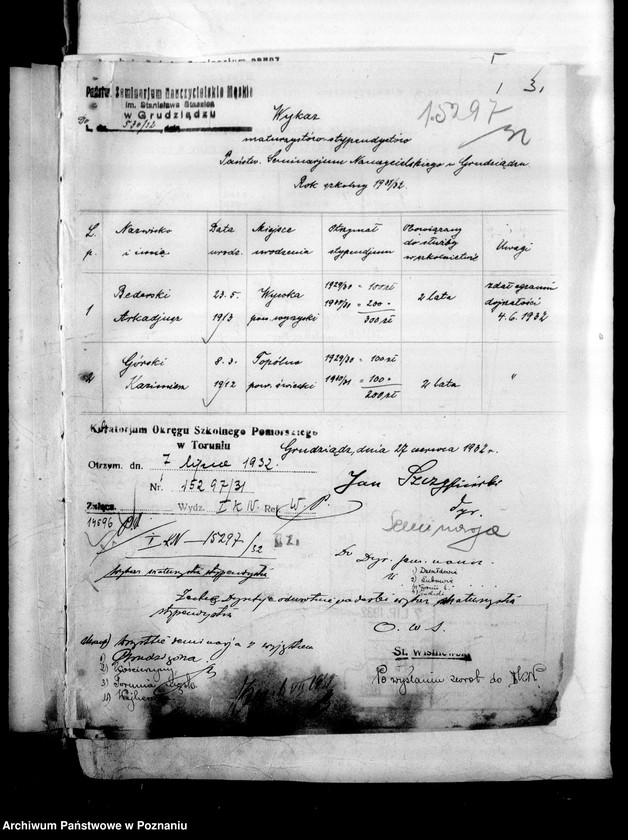 3.
Państw. Seminarjum Nauczycielskie Męskie
im. Stanisława Staszica
w Grudziądzu
L. dn. 530/32
15297
Wykaz
maturzystów-stypendystów
Państw. Seminarjum Nauczycielskiego w Grudziądzu
Rok szkolny 1931/32.
L. p.
Nazwisko i imię
Data urodz.
Miejsce urodzenia
Otrzymał stypendjum
Obowiązany do służby w szkolnictwie
Uwagi
1
Bederski Arkadjusz
23. 5. 1913
Wysoka pow. wyrzyski
1929/30 = 100 zł
1930/31 = 200 "
300 zł
2 lata
zdał egzamin dojrzałości 4.6.1932
2
Górski Kazimierz
8. 3. 1912
Topólno pow. świecki
1929/30 = 100 zł
1930/31 = 100 "
200 zł
2 lata
"
Kuratorjum Okręgu Szkolnego Pomorskiego
w Toruniu
Grudziądz, dnia 27 czerwca 1932 r.
Otrzym. dn. 7 lipca 1932
Nr. 15297/31
Załącz. Wydz. I K N. Ref. W. P.
Jan
dyr.
Seminarja
14596
I KN — 15297/32
Do Dyr. sem. naucz.
w
1) Działdowie
2) Lubawie
Wykaz maturzystów stypendystów
O. w S.
St. WIŚNIEWSKI
wszystkie seminarja z wyjątkiem
1) Grudziądza
2) Kościerzyny
3) Torunia
4)
Po wysłaniu zwrot do I KN.
Archiwum Państwowe w Poznaniu